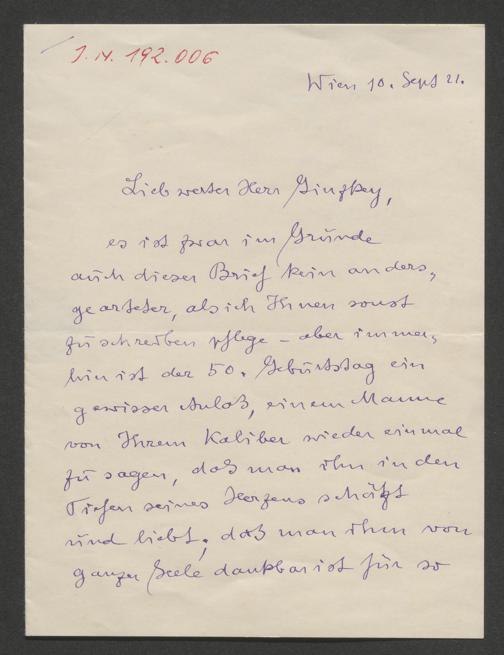 J. N. 192.006
Wien 10. Sept 21.
Lieb werter Herr Ginzkey,
es ist zwar im Grunde
auch dieser Brief kein anders,
gearteter, als ich Ihnen sonst
zu schreiben pflege – aber immer,
hin ist der 50. Geburtstag ein
gewisser Anlaß, einem Manne
von Ihrem Kaliber wieder einmal
zu sagen, daß man ihn in den
Tiefen seines Herzens schätzt
und liebt, daß man ihm von
ganzer Seele dankbar ist für so